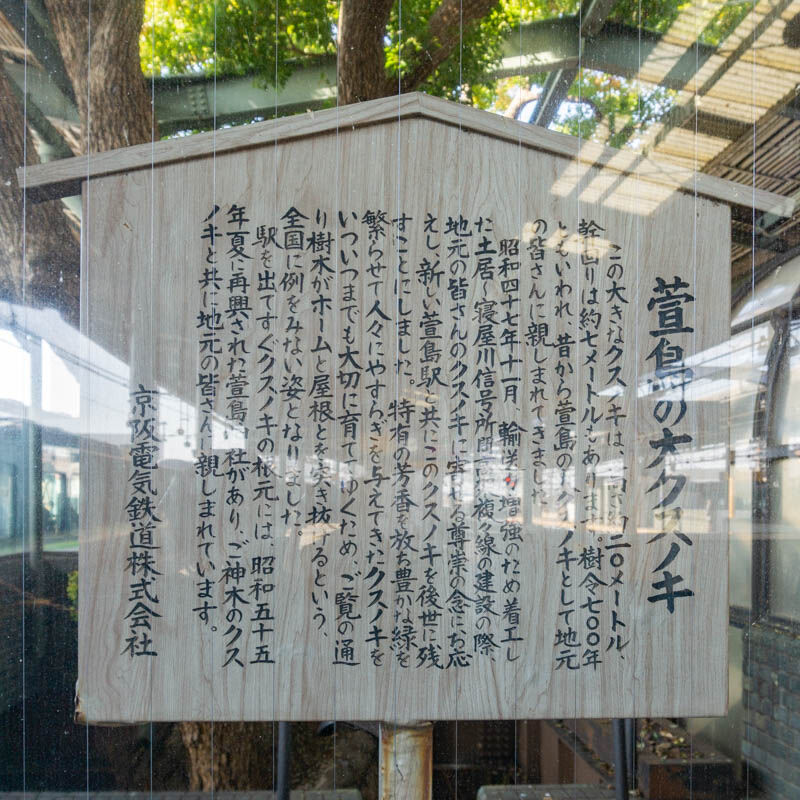 萱島の大クスノキ
この大きなクスノキは、高さ約二〇メートル、
幹回りは約七メートルもあります。樹令七〇〇年
ともいわれ、昔から萱島の大クスノキとして地元
の皆さんに親しまれてきました。
昭和四十七年十一月、輸送力増強のため着工し
た土居～寝屋川信号所間高架複々線の建設の際、
地元の皆さんのクスノキに寄せる尊崇の念にお応
えし、新しい萱島駅と共にこのクスノキを後世に残
すことにしました。特有の芳香を放ち豊かな緑を
繁らせて人々にやすらぎを与えてきたクスノキを
いついつまでも大切に育ててゆくため、ご覧の通
り樹木がホームと屋根とを突き抜するという、
全国に例をみない姿となりました。
駅を出てすぐクスノキの根元には、昭和五十五
年夏に再興された萱島神社があり、ご神木のクス
ノキと共に地元の皆さんに親しまれています。
京阪電気鉄道株式会社